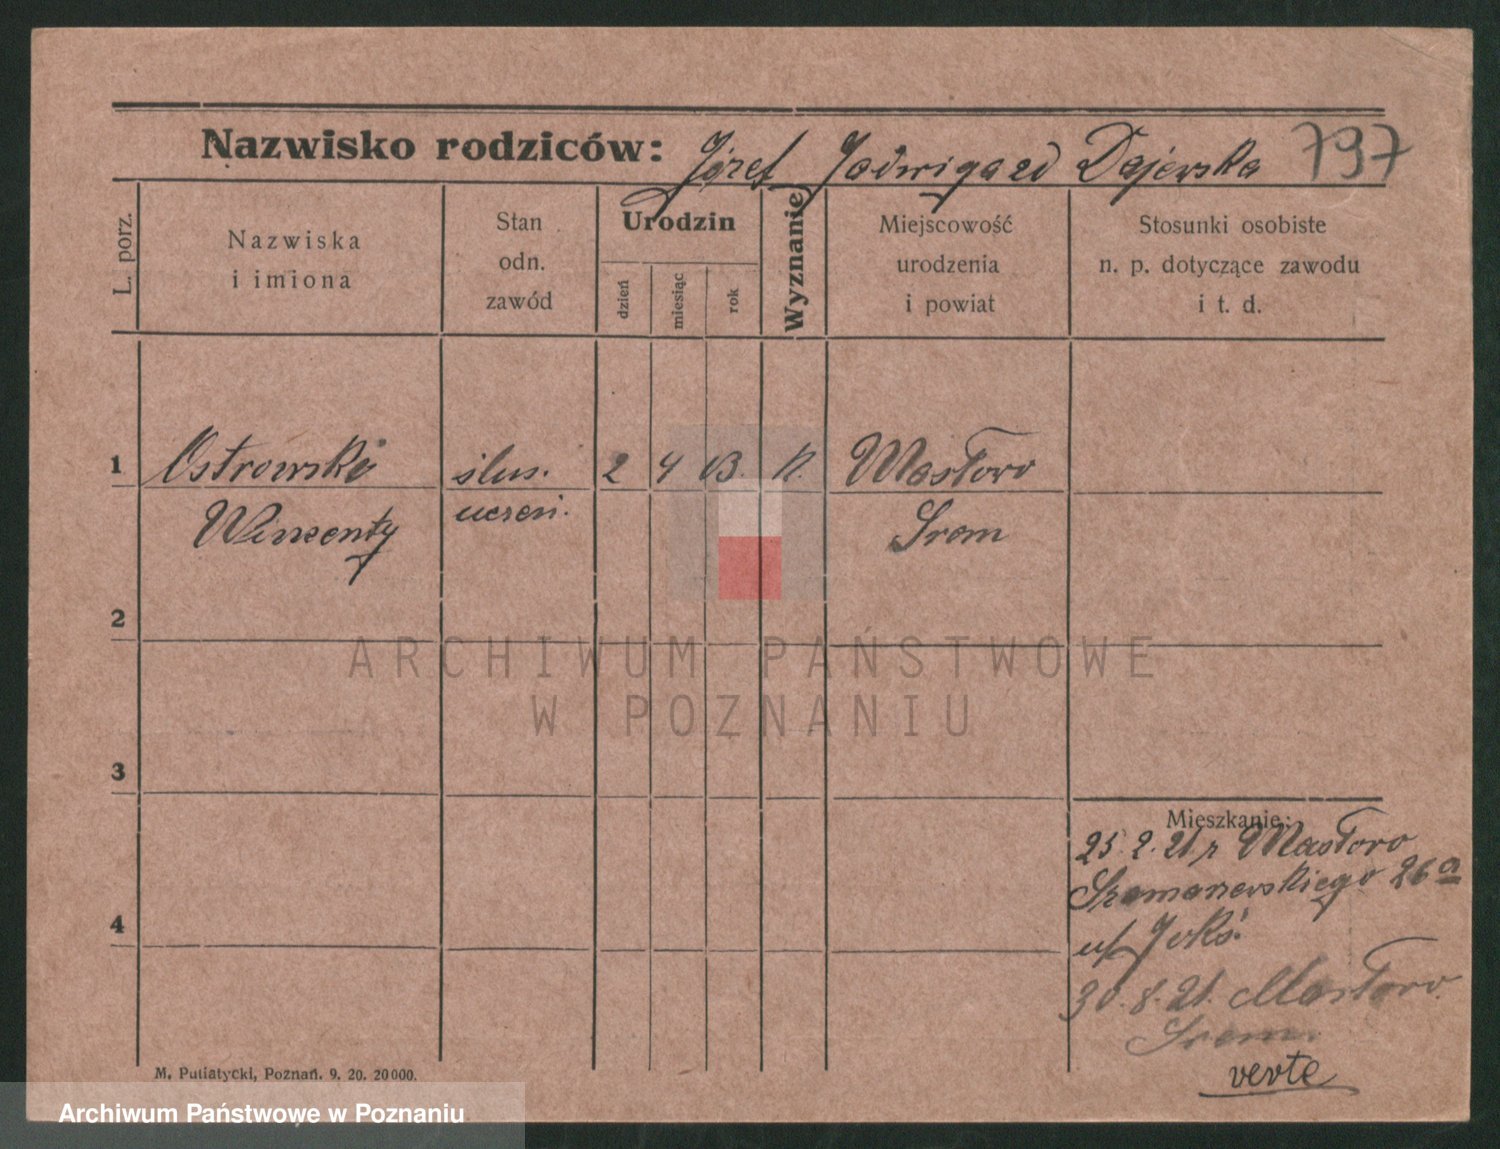 Nazwisko rodziców: Józef Jadwiga zd Dajerska 797
L. porz.
Nazwiska
i imiona
Stan
odn.
zawód
Urodzin
dzień
miesiąc
rok
Wyznanie
Miejscowość
urodzenia
i powiat
Stosunki osobiste
n. p. dotyczące zawodu
i t. d.
1 Ostrowski ślus. 2 4 03. K. Masłowo
Wincenty uczeń. Śrem
2
3
4
Mieszkanie:
25.2.21 r Masłowo
26a
30.8.21. Masłowo
Śrem.
verte
M. Putiatycki, Poznań. 9. 20. 20000.
ARCHIWUM PAŃSTWOWE
W POZNANIU
Archiwum Państwowe w Poznaniu